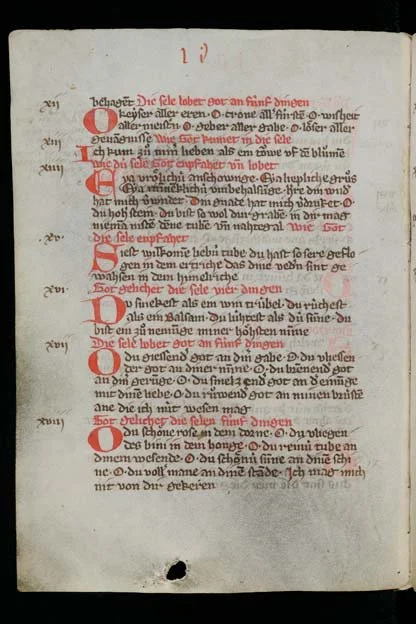 xii behaget Die sele lobet got an fúnf dingen
O keyser aller eren · O · crone aller fúrsten · O · wisheit
aller meistern · O · geber aller gabe · O · lôser aller
gevangnisse Wie got kumet in die sele
xiii Ich kum zů minr lieben als ein towe vf dē blůmē
xiiii Wie dú sele got enpfahet vñ lobet
Eya vrôlichú anschowunge · Eya lieplich grůs
Eya minneklichú vmbehalsunge · hre din wnder
hat mich v̓wundet · Din gnade hat mich v̓druket · O ·
du hoh stein · du bist so wol durgrabē · in dir mag
nieman nistē dene tubē vñ nahtegal Wie Got
xv · die sele enpfahet
Siest wilkomē liebú tube du hast so sere geflo
gen in dem ertriche das dine vedrn sint ge
wahsen in dem himelriche
xvi · Got gelichet die sele vier dingen
Du smekest als ein win trúbel · du rúchest
als ein balsam · du lúhtest als dú suñe · du
bist ein zůnemunge miner hôhsten miñe
xvii Die sele lobet got an fúnf dingen
O du giessender got an diner gabe · O · du vliessender
got an diner miñe · O · du bren̄ender got
an diner gerunge · O · du smelzender got an der einunge
mit dinē liebe · O · du růwender got an minen brústē
ane die ich nút wesen mag
xviii Got gelichet die selen fúnf dingen
O du schône rose in dem dorne · O · du vliegendes
bini in dem honge · O · du reinú tube an
dinem wesende · O · du schônú suñe an dinē schi
ne · O · du voller mane an dinē stande · Ich mag mich
nit von dir gekeren